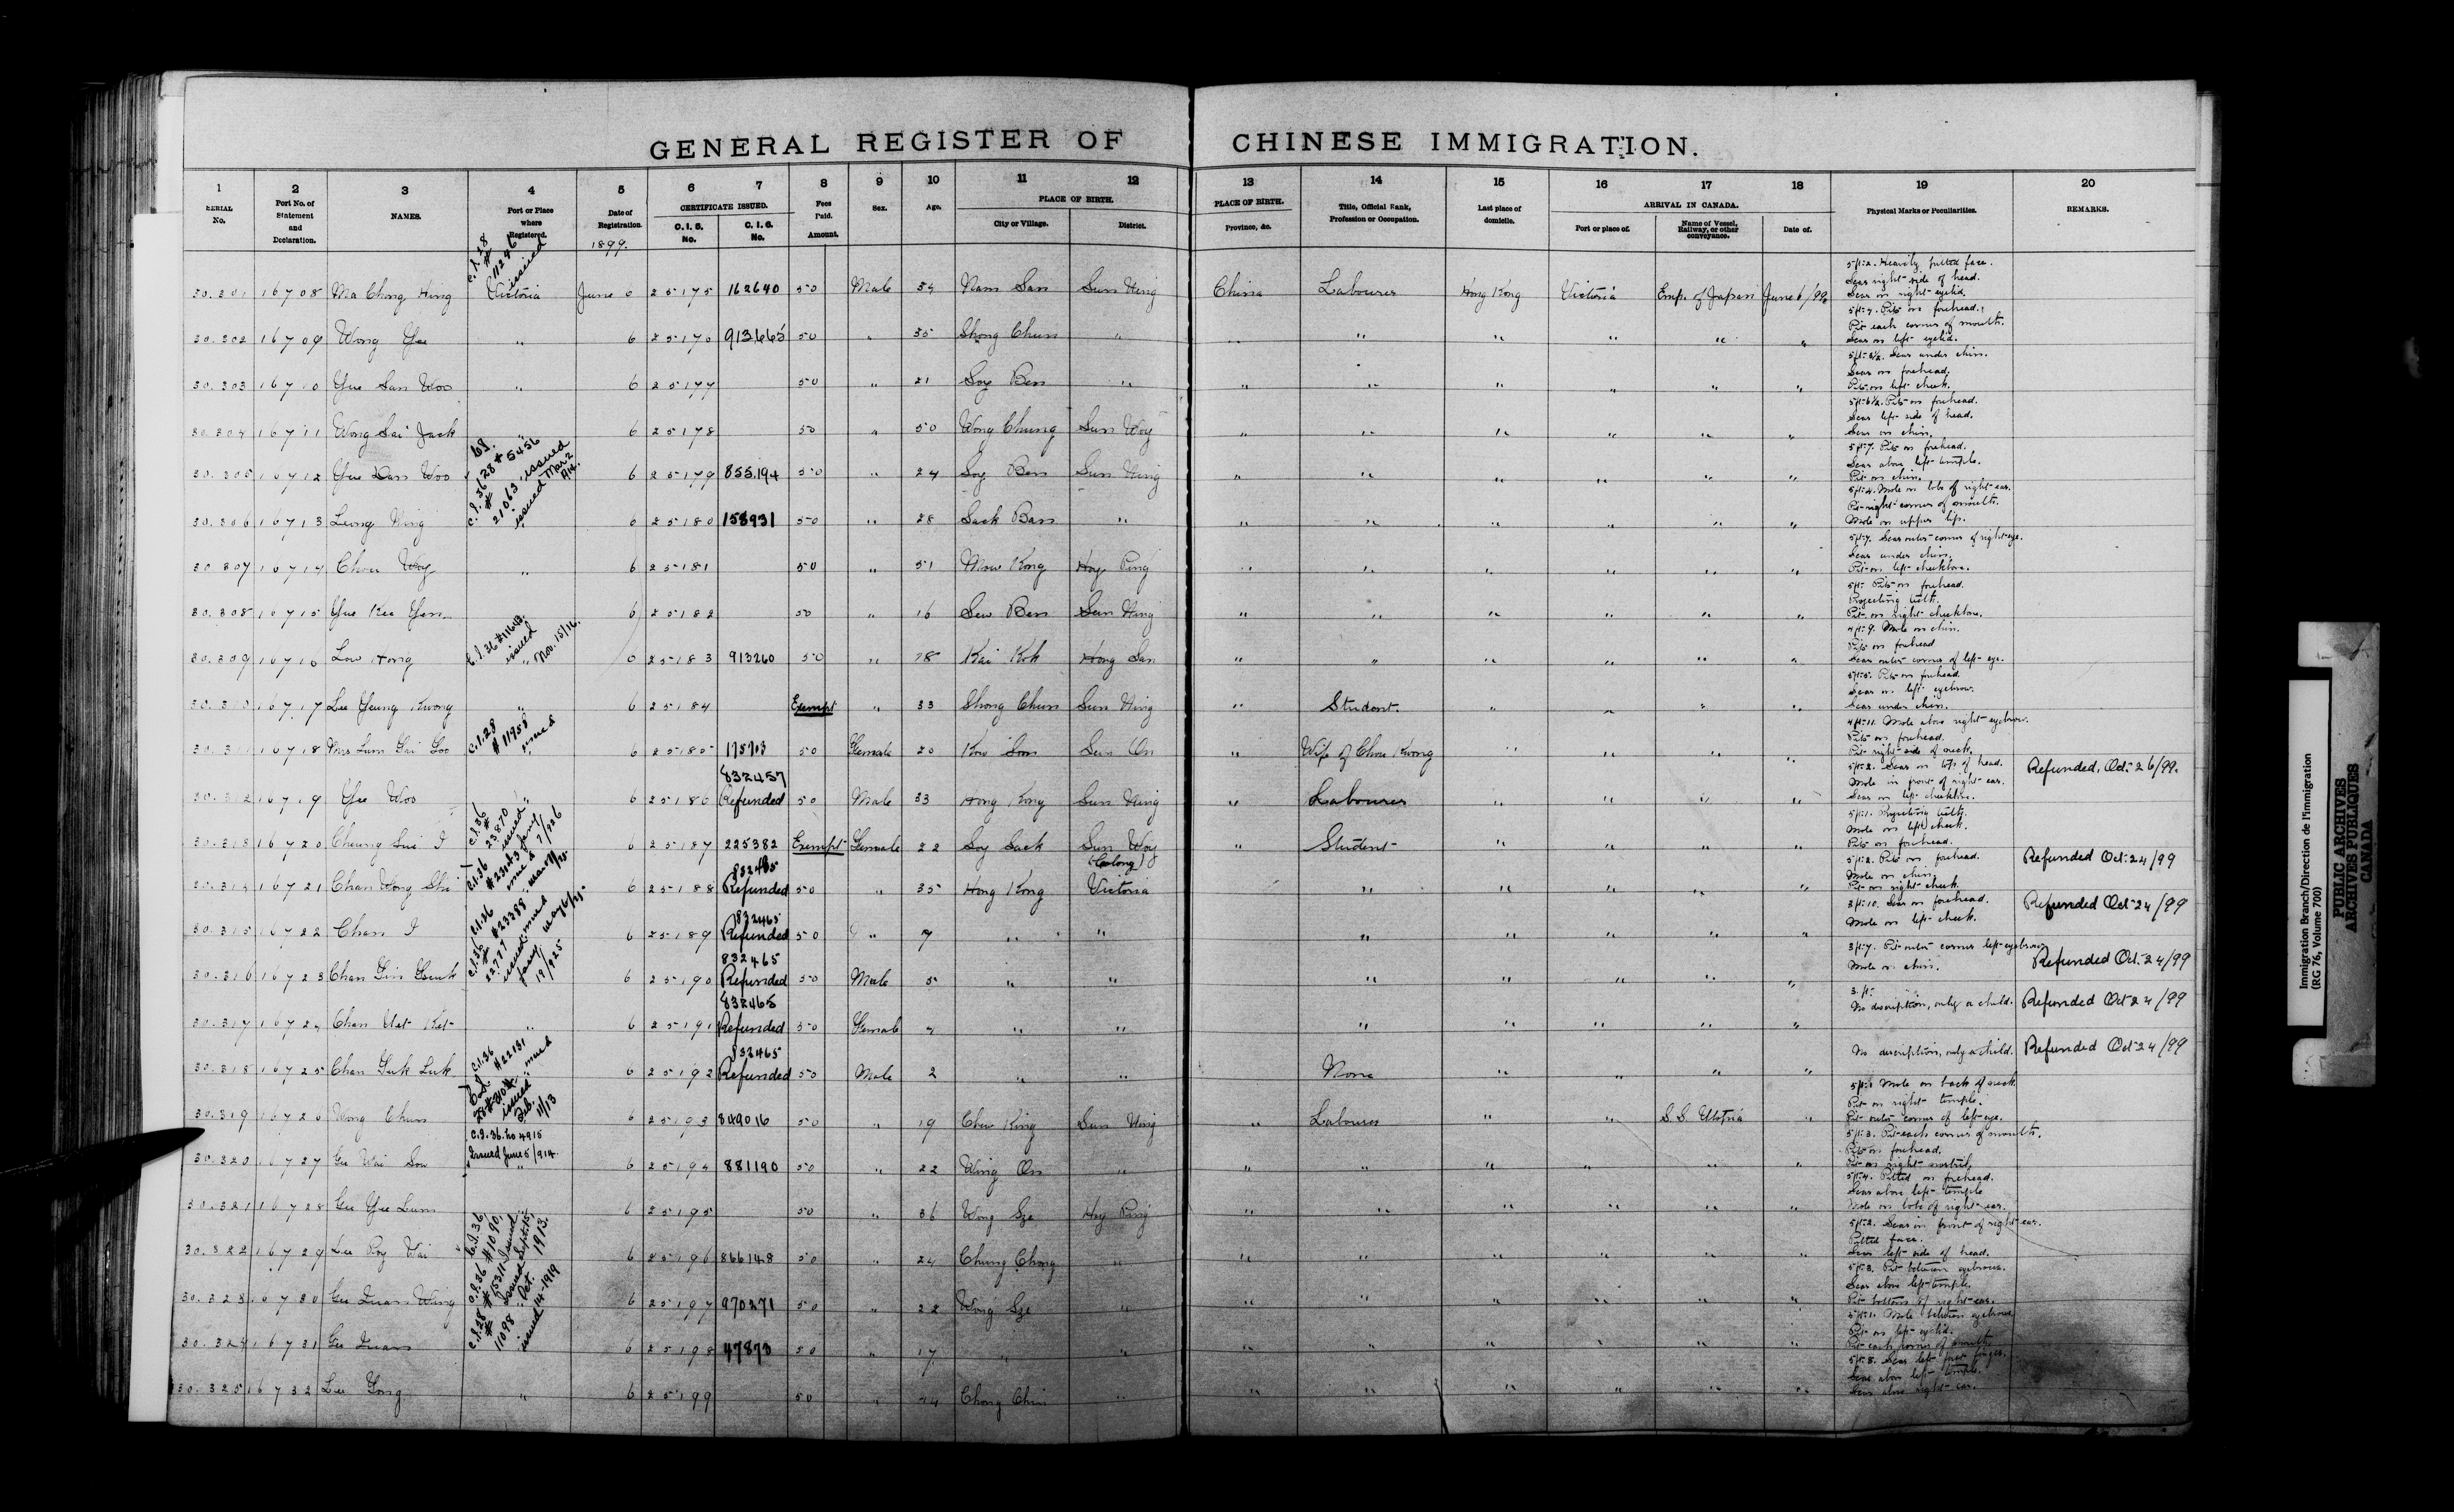 GENERAL REGISTER OF CHINESE IMMIGRATION.
1 2 3 4 5 6 7 8 9 10 11 12 13 14 15 16 17 18 19 20
SERIAL No. Port No. of Statement and Declaration. NAMES. Port or Place where Registered. Date of Registration. CERTIFICATE ISSUED. C.I.5. No. C.I.6. No. Fees Paid. Amount. Sex. Age. PLACE OF BIRTH. City or Village. District. PLACE OF BIRTH. Province, &c. Title, Official Rank, Profession or Occupation. Last place of domicile. ARRIVAL IN CANADA. Port or place of. Name of Vessel, Railway, or other conveyance. Date of. Physical Marks or Peculiarities. REMARKS.
1899.
30.301 16708 Ma Chong Hing Victoria June 6 25175 162640 50 Male 34 Nam San Sun Ning China Labourer Hong Kong Victoria Emp. of Japan June 6/99 5ft-2. Heavily pitted face. Scar right side of head. Scar on right eyelid.
30.302 16709 Wong Yee " 6 25176 913665 50 " 35 Shong Chun " " " " " " " 5ft-7. Pits on forehead. Pit each corner of mouth. Scar on left eyelid.
30.303 16710 Yue San Woo " 6 25177 50 " 21 Soy Ben " " " " " " " 5ft-3½. Scar under chin. Scar on forehead. Pits on left cheek.
30.304 16711 Wong Sai Jack " 6 25178 50 " 50 Wong Chung Sun Woy " " " " " " 5ft-6½. Pits on forehead. Scar left side of head. Scar on chin.
30.305 16712 Yue Dan Woo 6 25179 855.194 50 " 24 Soy Ben Sun Ning " " " " " " 5ft-7. Pits on forehead. Scar above left temple. Pit on chin.
30.306 16713 Leong Ning 6 25180 158931 50 " 28 Sack Ban " " " " " " " 5ft-4. Mole on lobe of right ear. Pit right corner of mouth. Mole on upper lip.
30.307 16714 Chou Woy " 6 25181 50 " 51 Mow Kong Hoy Ping " " " " " " 5ft-7. Scar outer corner of right eye. Scar under chin. Pit on left cheekbone.
30.308 16715 Yue Kee Yen 6 25182 50 " 16 Sew Ben Sun Ning " " " " " " 5ft- Pits on forehead. Projecting teeth. Pit on right cheekbone.
30.309 16716 Low Hong " 6 25183 913260 50 " 18 Kai Kok Hong San " " " " " " 4ft-9. Mole on chin. Pits on forehead Scar outer corner of left eye.
30.310 16717 Lee Yeung Kwong " 6 25184 Exempt " 33 Shong Chun Sun Ning " Student. " " " " 5ft-5. Pits on forehead. Scar on left eyebrow. Scar under chin.
30.311 16718 Mrs Lum Gai Soo " 6 25185 175703 50 Female 20 Kow Loon Sun On " Wife of Chou Kwong " " " " 4ft-11. Mole above right eyebrow. Pits on forehead. Pit right side of neck.
30.312 16719 Yee Woo " 6 25186 832457 Refunded 50 Male 33 Hong Kong Sun Ning " Labourer " " " " 5ft-2. Scar on top of head. Mole in front of right ear. Scar on left cheekbone. Refunded, Oct-26/99.
30.313 16720 Cheung Sui I 6 25187 225382 Exempt Female 22 Soy Sack Sun Woy " Student " " " " 5ft-1. Projecting teeth. Mole on left cheek. Pits on forehead.
30.314 16721 Chan Wong Shi 6 25188 832465 Refunded 50 " 35 Hong Kong (Colony) Victoria " " " " " 5ft-2. Pits on forehead. Mole on chin. Pit on right cheek. Refunded Oct-24/99
30.315 16722 Chan I 6 25189 832465 Refunded 50 " 7 " " " " " " " 3ft-10. Scar on forehead. Mole on left cheek. Refunded Oct-24/99
30.316 16723 6 25190 832465 Refunded 50 Male 5 " " " " " " " 3ft-7. Pit outer corner left eyebrow Mole on chin. Refunded Oct-24/99
30.317 16724 Chan Uat Ket " 6 25191 832465 Refunded 50 Female 4 " " " " " " " 3.ft- No description, only a child. Refunded Oct 24/99
30.318 16725 Chan Yuk Luk 6 25192 832465 Refunded 50 Male 2 " " None " " " " No description, only a child. Refunded Oct-24/99
30.319 16726 Wong Chun 6 25193 849016 50 " 19 Chew King Sun Ning " Labourer " " S.S. Ulstria " 5ft-1 Mole on back of neck Pit on right temple. Pit outer corner of left eye.
30.320 16727 Gee Wai Sow " 6 25194 881190 50 " 22 Wing On " " " " " " " 5ft-3. Pit each corner of mouth. Pits on forehead. Pit on right nostril.
30.321 16728 Gee Yee Lum 6 25195 50 " 36 Wong Sze Hoy Ping " " " " " " 5ft-4. Pitted on forehead. Scar above left temple Mole on lobe of right ear.
30.322 16729 Lee Poy Wai 6 25196 866148 50 " 24 Chung Chong " " " " " " " 5ft-2. Scar in front of right ear. Pitted face. Scar left side of head.
30.323 16730 Gee Quan Wing 6 25197 970271 50 " 22 Wong Sze " " " " " " " 5ft-3. Pit between eyebrows. Scar above left temple. Pit bottom of right ear.
30.324 16731 Gee Quan 6 25198 47873 50 " 17 " " " " " " " " 5ft-1. Mole between eyebrows Pit on left eyelid. Pit each corner of mouth.
30.325 16732 Lee Gong " 6 25199 50 " 44 Chong Chui " " " " " " " 5ft-3. Scar left fore finger. Scar above left temple. Scar above right ear.
C.I.28 # 11246 issued
C.I.28 # 5456 issued
C.I.36 # 21063 issued Mar 2
C.I.36 #11643 issued Nov. 15/16.
C.I.28 # 11958 issued
C.I.36 # 23870 issued
C.I.36 #23388 issued
C.I.36 # 22777 issued Jany 19/925
C.I.36 #22131 issued
issued Feb. 11/13
C.I.36. no 4915
Issued June 5/914.
C.I.36 #1090, issued Sept. 15, 1913.
C.I.36 #15311 issued
C.I.28 # 11098 issued Oct. 14-1919
Immigration Branch/Direction de l'immigration
(RG 76, Volume 700)
PUBLIC ARCHIVES
ARCHIVES PUBLIQUES
CANADA